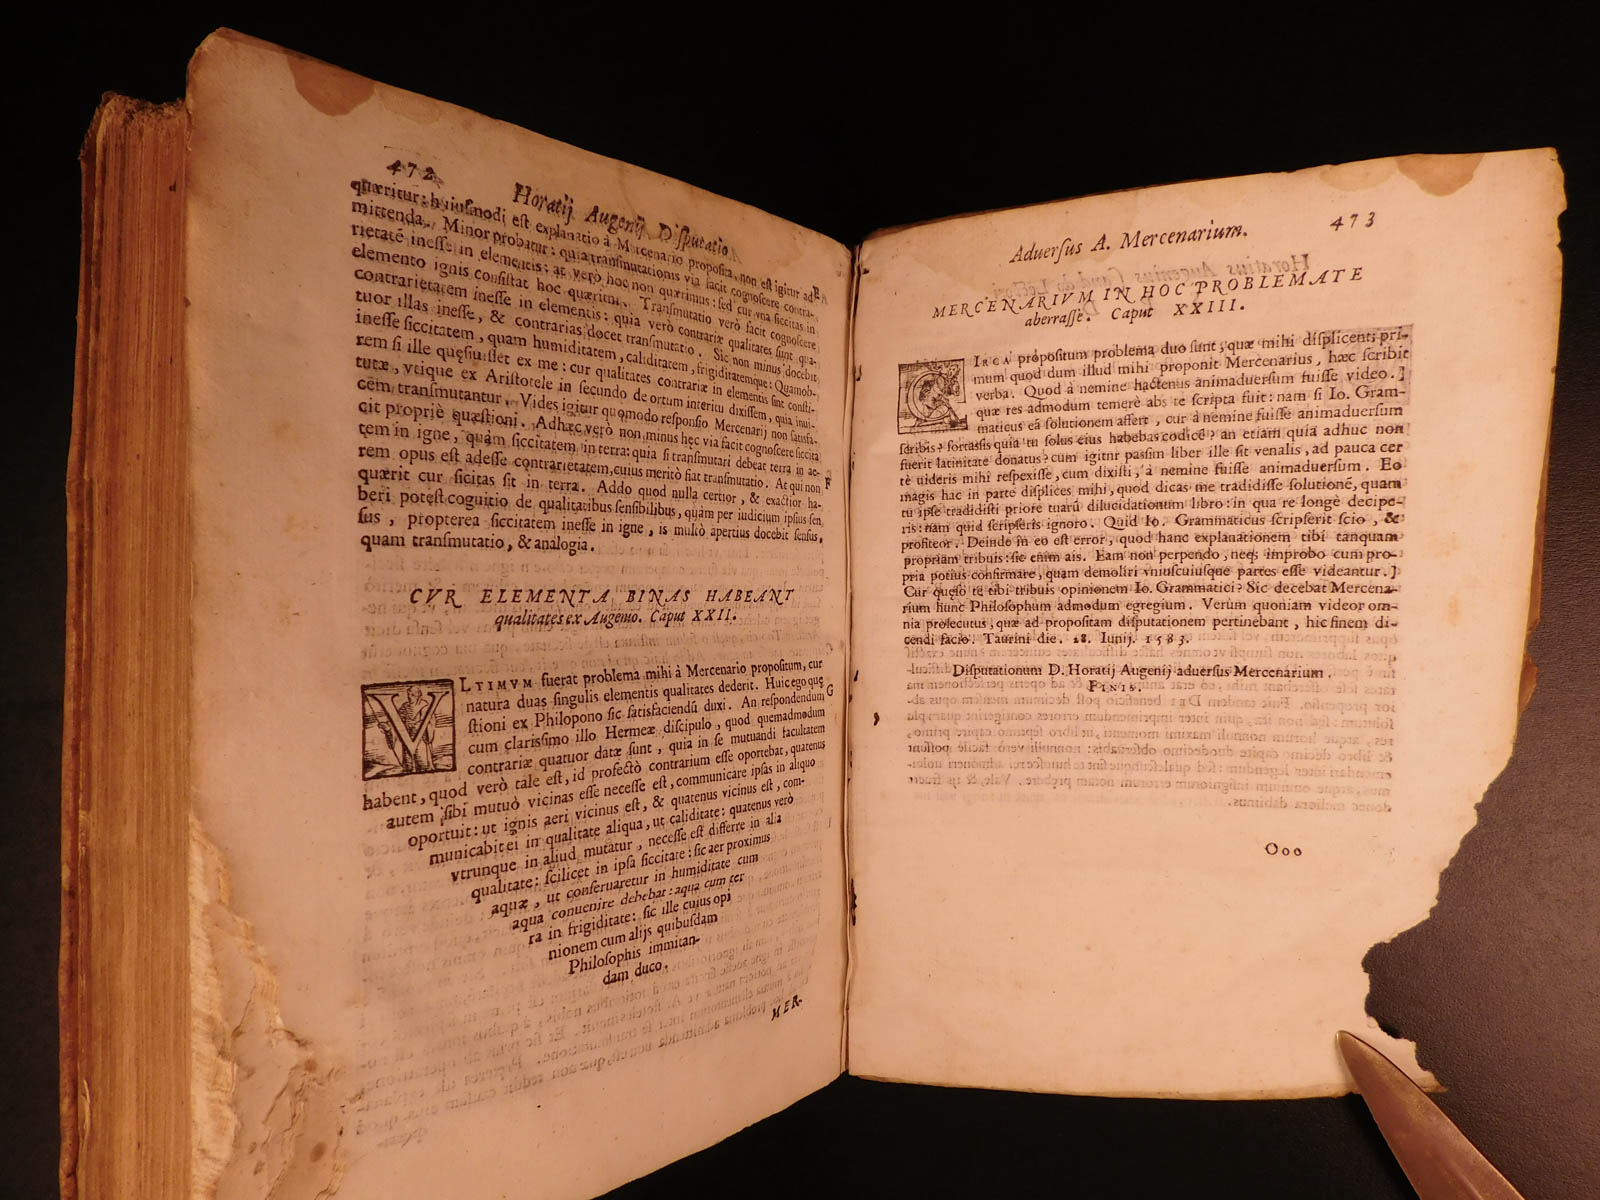 472
Horatij Augenij Disputatio
quæritur: huiusmodi est explanatio à Mercenario proposita, non est igitur ad
mittenda. Minor probatur: quia transmutationis via facit cognoscere contra-
rietatē inesse in elementis: at verò hoc non quærimus: sed cur vna siccitas in
elemento ignis consistat hoc quæritur. Transmutatio verò facit cognoscere
contrarietatem inesse in elementis: quia verò contrariæ qualitates sunt qua-
tuor illas inesse, & contrarias docet transmutatio. Sic non minus docebit
inesse siccitatem, quam humiditatem, caliditatem, frigiditatemque: Quamob-
rem si ille quęsiuisset ex me: cur qualitates contrariæ in elementis sint consti-
tutæ, vtique ex Aristotele in secundo de ortu interitu dixissem, quia inui-
cēm transmutantur. Vides igitur quomodo responsio Mercenarij non satisfa-
cit propriè quæstioni. Adhæc verò non minus hęc via facit cognoscere siccita
tem in igne, quàm siccitatem in terra: quia si transmutari debeat terra in ae-
rem opus est adesse contrarietatem, cuius meritò fiat transmutatio. At qui non
quærit cur siccitas sit in terra. Addo quod nulla certior, & exactior ha-
beri potest cognitio de qualitatibus sensibilibus, quàm per iudicium ipsius sen
sus, propterea siccitatem inesse in igne, is multò apertius docebit sensus,
quam transmutatio, & analogia.
F
CVR ELEMENTA BINAS HABEANT
qualitates ex Augenio. Caput XXII.
VLTIMVM fuerat problema mihi à Mercenario propositum, cur
natura duas singulis elementis qualitates dederit. Huic ego quę
stioni ex Philopono sic satisfaciendū duxi. An respondendum
cum clarissimo illo Hermeæ discipulo, quod quemadmodum
contrariæ quatuor datæ sunt, quia in se mutuandi facultatem
habent, quod verò tale est, id profectò contrarium esse oportebat, quatenus
autem sibi mutuò vicinas esse necesse est, communicare ipsas in aliquo
oportuit: ut ignis aeri vicinus est, & quatenus vicinus est, com-
municabit ei in qualitate aliqua, ut caliditate: quatenus verò
vtrunque in aliud mutatur, necesse est differre in alia
qualitate: scilicet in ipsa siccitate: sic aer proximus
aquæ, ut conseruaretur in humiditate cum
aqua conuenire debebat: aqua cum ter
ra in frigiditate: sic ille cuius opi
nionem cum alijs quibusdam
Philosophis immitan-
dam duco.
G
MER-
473
Aduersus A. Mercenarium.
MERCENARIVM IN HOC PROBLEMATE
aberrasse. Caput XXIII.
CIRCA propositum problema duo sunt, quæ mihi displicent: pri-
mum quod dum illud mihi proponit Mercenarius, hæc scribit
verba. Quod à nemine hactenus animaduersum fuisse video.]
quæ res admodum temerè abs te scripta fuit: nam si Io. Gram-
maticus eā solutionem affert, cur à nemine fuisse animaduersum
scribis? fortassis quia tu solus eius habebas codicē? an etiam quia adhuc non
fuerit latinitate donatus? cum igitur passim liber ille sit venalis, ad pauca cer
tè uideris mihi respexisse, cum dixisti, à nemine fuisse animaduersum. Eo
magis hac in parte displices mihi, quod dicas me tradidisse solutionē, quam
tu ipse tradidisti priore tuarū dilucidationum libro: in qua re longè decipe-
ris: nam quid scripseris ignoro. Quid Io. Grammaticus scripserit scio, &
profiteor. Deinde in eo est error, quod hanc explanationem tibi tanquam
propriam tribuis: sic enim ais. Eam non perpendo, neq; improbo cum pro-
pria potius confirmare, quam demoliri vniuscuiusque partes esse videantur.]
Cur quęso te tibi tribuis opinionem Io. Grammatici? Sic decebat Mercena-
rium hunc Philosophum admodum egregium. Verùm quoniam videor om-
nia prosecutus, quæ ad propositam disputationem pertinebant, hic finem di-
cendi facio. Taurini die. 18. Iunij. 1583.
Disputationum D. Horatij Augenij aduersus Mercenarium.
FINIS.
Ooo